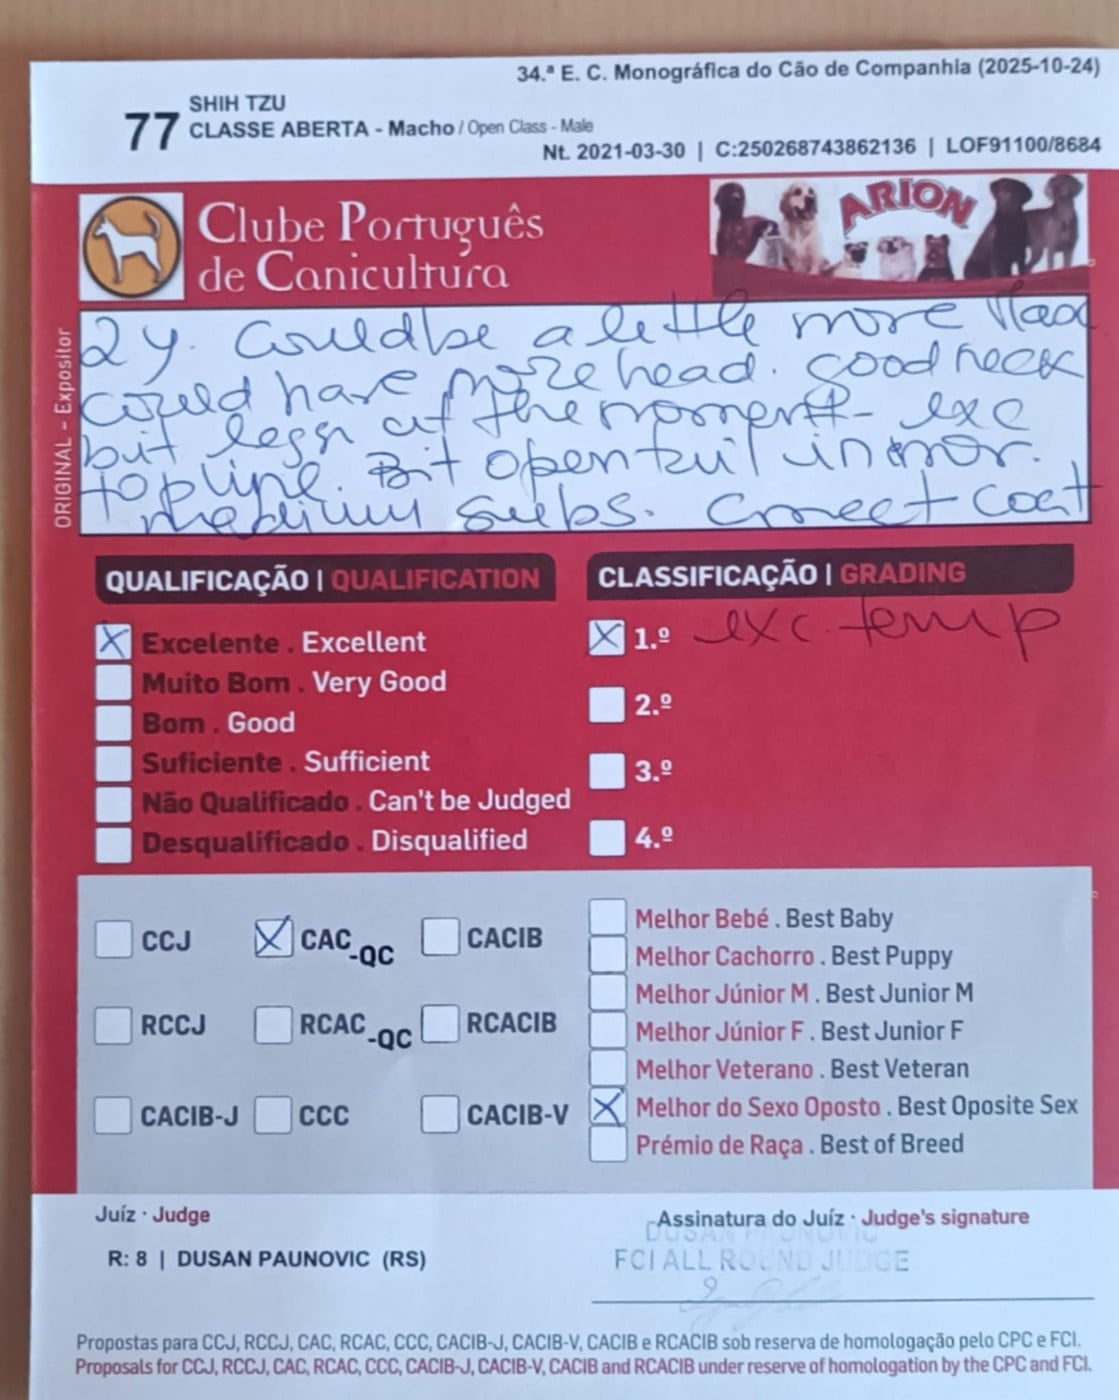 34.ª E. C. Monográfica do Cão de Companhia (2025-10-24)
77
SHIH TZU
CLASSE ABERTA - Macho / Open Class - Male
Nt. 2021-03-30 | C:250268743862136 | LOF91100/8684
Clube Português
de Canicultura
ARION
ORIGINAL – Expositor
2y. Could be a little more
could have more head. good neck
bit less at the moment - exc
topline. Bit open in mor.
medium subs. Correct coat
QUALIFICAÇÃO | QUALIFICATION
Excelente . Excellent
Muito Bom . Very Good
Bom . Good
Suficiente . Sufficient
Não Qualificado . Can't be Judged
Desqualificado . Disqualified
CLASSIFICAÇÃO | GRADING
1.º exc. temp
2.º
3.º
4.º
CCJ CAC-QC CACIB
RCCJ RCAC-QC RCACIB
CACIB-J CCC CACIB-V
Melhor Bebé . Best Baby
Melhor Cachorro . Best Puppy
Melhor Júnior M . Best Junior M
Melhor Júnior F . Best Junior F
Melhor Veterano . Best Veteran
Melhor do Sexo Oposto . Best Oposite Sex
Prémio de Raça . Best of Breed
Juíz · Judge
R: 8 | DUSAN PAUNOVIC (RS)
Assinatura do Juíz · Judge's signature
DUSAN PAUNOVIC
FCI ALL ROUND JUDGE
Propostas para CCJ, RCCJ, CAC, RCAC, CCC, CACIB-J, CACIB-V, CACIB e RCACIB sob reserva de homologação pelo CPC e FCI.
Proposals for CCJ, RCCJ, CAC, RCAC, CCC, CACIB-J, CACIB-V, CACIB and RCACIB under reserve of homologation by the CPC and FCI.